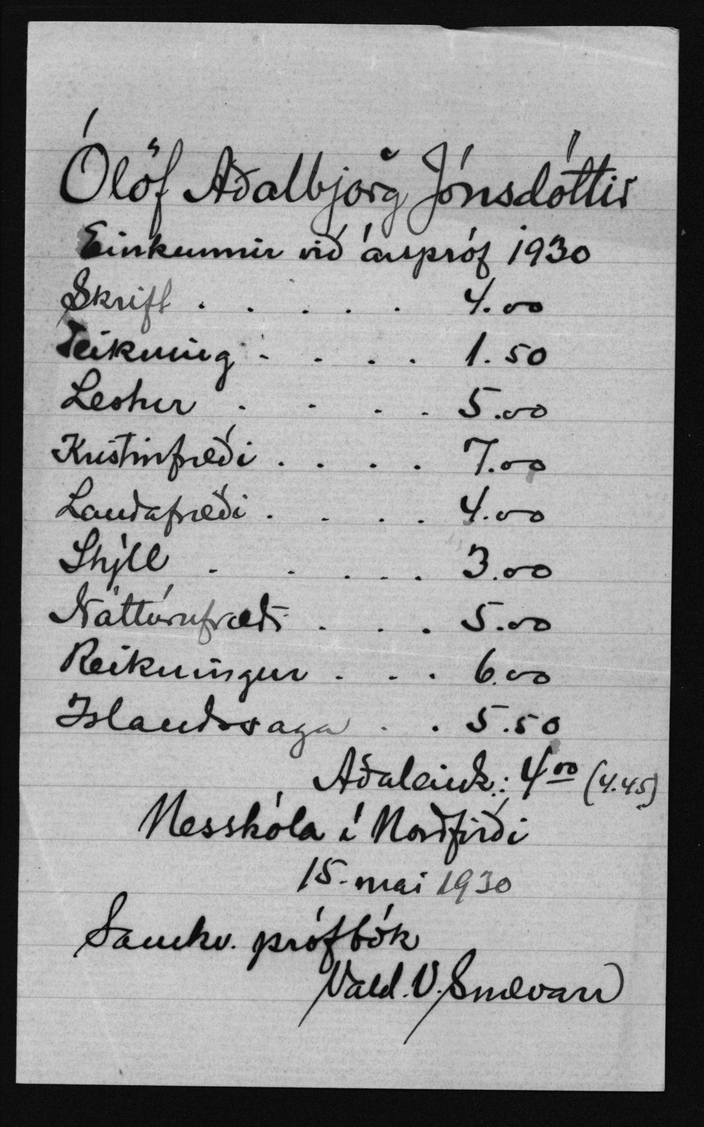 Ólöf Aðalbjörg Jónsdóttir
Einkunnir við árspróf 1930
Skrift . . . . . 4.00
Teikning . . . . 1.50
Lestur . . . . 5.00
Kristinfræði . . . . 7.00
Landafræði . . . . 4.00
Stýll . . . . . 3.00
Náttúrufræði . . . 5.00
Reikningur . . . 6.00
Íslandssaga . . 5.50
Aðaleink.: 4.00 (4.45)
Nesskóla í Norðfirði
15. maí 1930
Samkv. prófbók
Vald. V. Snævarr